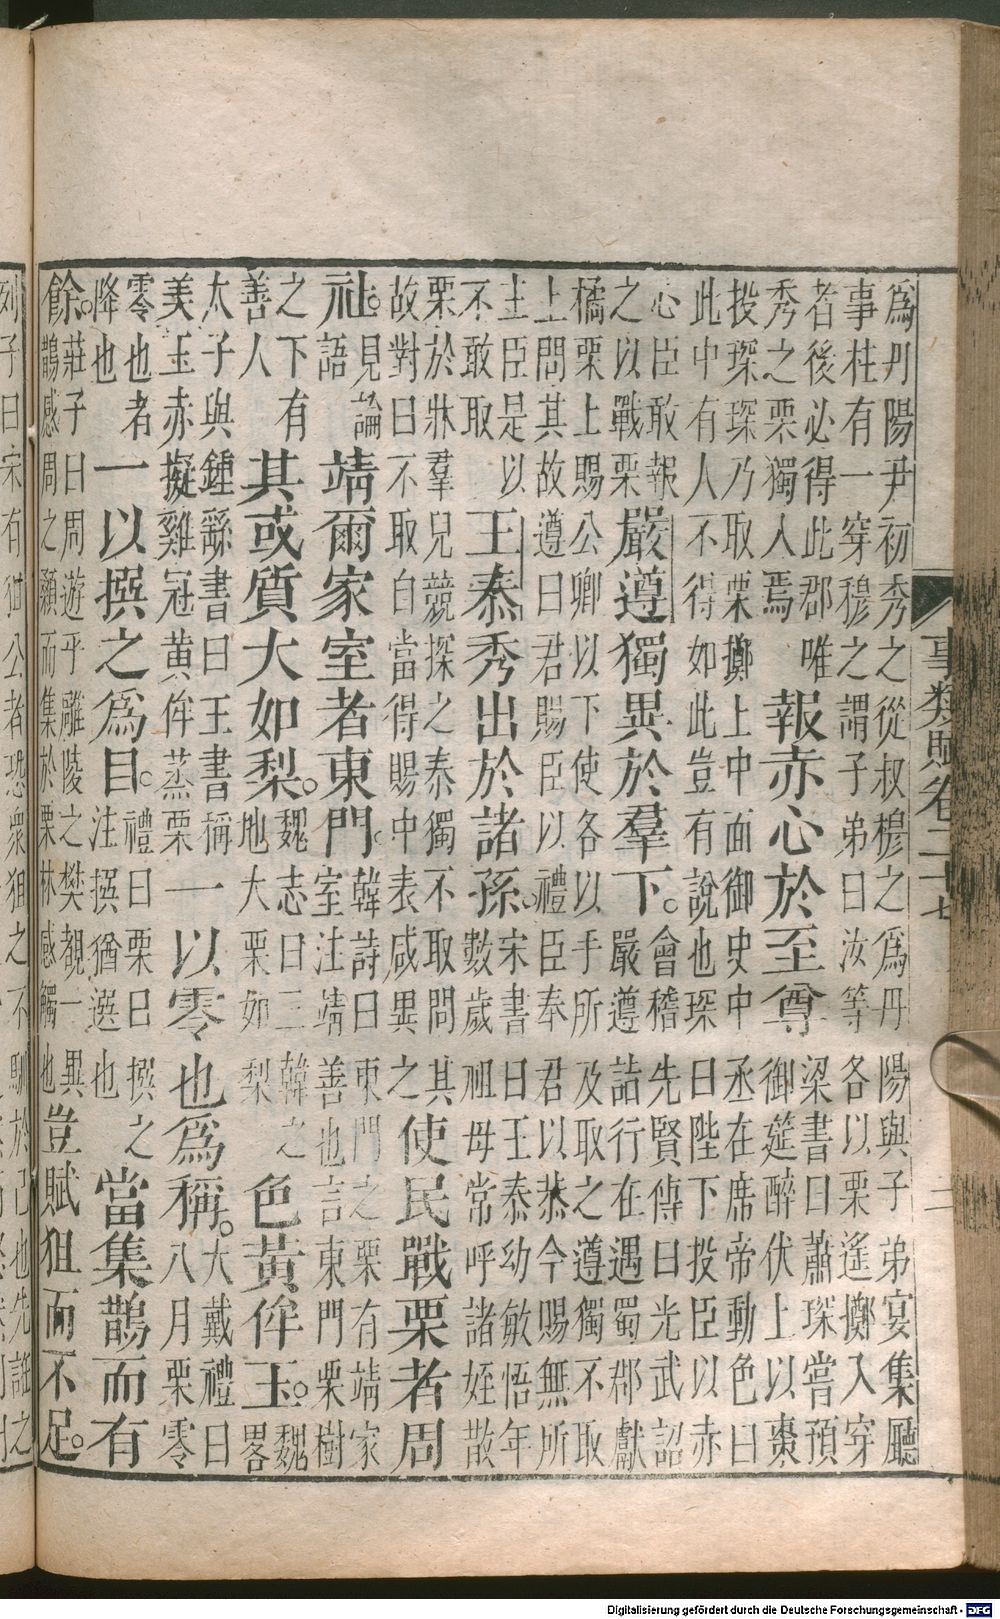 事類賦卷二十七
二
爲丹陽尹初秀之從叔穆之爲丹陽與子弟宴集廳
事柱有一穿穆之謂子弟曰汝等各以栗遙擲入穿
者後必得此郡唯
秀之栗獨入焉
報赤心於至尊
梁書曰蕭琛嘗預
御筵醉伏上以棗
投琛琛乃取栗擲上中面御史中丞在席帝動色曰
此中有人不得如此豈有說也琛曰陛下投臣以赤
心臣敢報
之以戰栗
嚴遵獨異於羣下。
會稽先賢傳曰光武詔
嚴遵詰行在遇蜀郡獻
橘栗上賜公卿以下使各以手所及取之遵獨不取
上問其故遵曰君賜臣以禮臣奉君以恭今賜無所
主臣是以
不敢取
王泰秀出於諸孫。
宋書曰王泰幼敏悟年
數歲祖母常呼諸姪散
栗於牀羣兒競探之泰獨不取問其
故對曰不取白當得賜中表咸異之
使民戰栗者周
社。
見論
語
靖爾家室者東門。
韓詩曰東門之栗有靖家
室注靖善也言東門栗樹
之下有
善人
其或質大如梨。
魏志曰三韓之
地大栗如梨
色黃侔玉。
魏
畧
太子與鍾繇書曰王書稱
美玉赤擬雞冠黃侔蒸栗
一以零也爲稱。
大戴禮曰
八月栗零
零也者
降也
一以撰之爲目。
禮曰栗曰撰之
注撰猶選也
當集鵲而有
餘。
莊子曰周遊乎雕陵之樊覩一異
鵲感周之顙而集於栗林感觸也
豈賦狙而不足。
列子曰宋有狙公者恐衆狙之不馴於己也先誑之
Digitalisierung gefördert durch die Deutsche Forschungsgemeinschaft - DFG